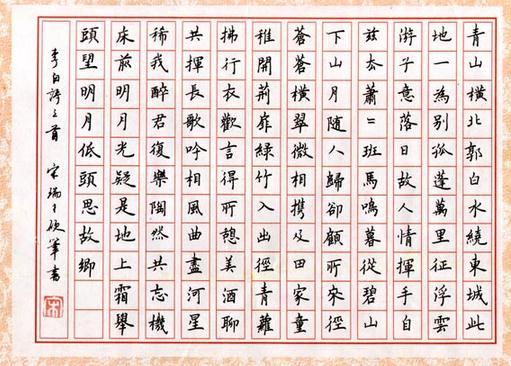 青山橫北郭白水繞東城此
地一為別孤蓬萬里征浮雲
游子意落日故人情揮手自
茲去蕭=班馬鳴暮從碧山
下山月隨人歸卻顧所來徑
蒼蒼橫翠微相攜及田家童
稚開荊扉綠竹入出徑青蘿
拂行衣歡言得所憩美酒聊
共揮長歌吟相風曲盡河星
稀我醉君復樂陶然共忘機
床前明月光疑是地上霜舉
頭望明月低頭思故鄉
李白詩三首 宋瑞硬筆書